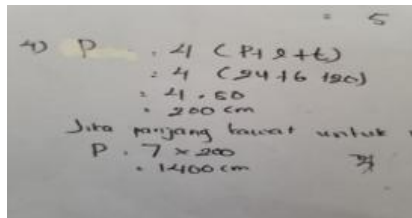 = 5
4) P = 4 (P+l+t)
= 4 (24+6+20)
= 4 . 50
= 200 cm
Jika panjang kawat untuk
P = 7 x 200
= 1400 cm